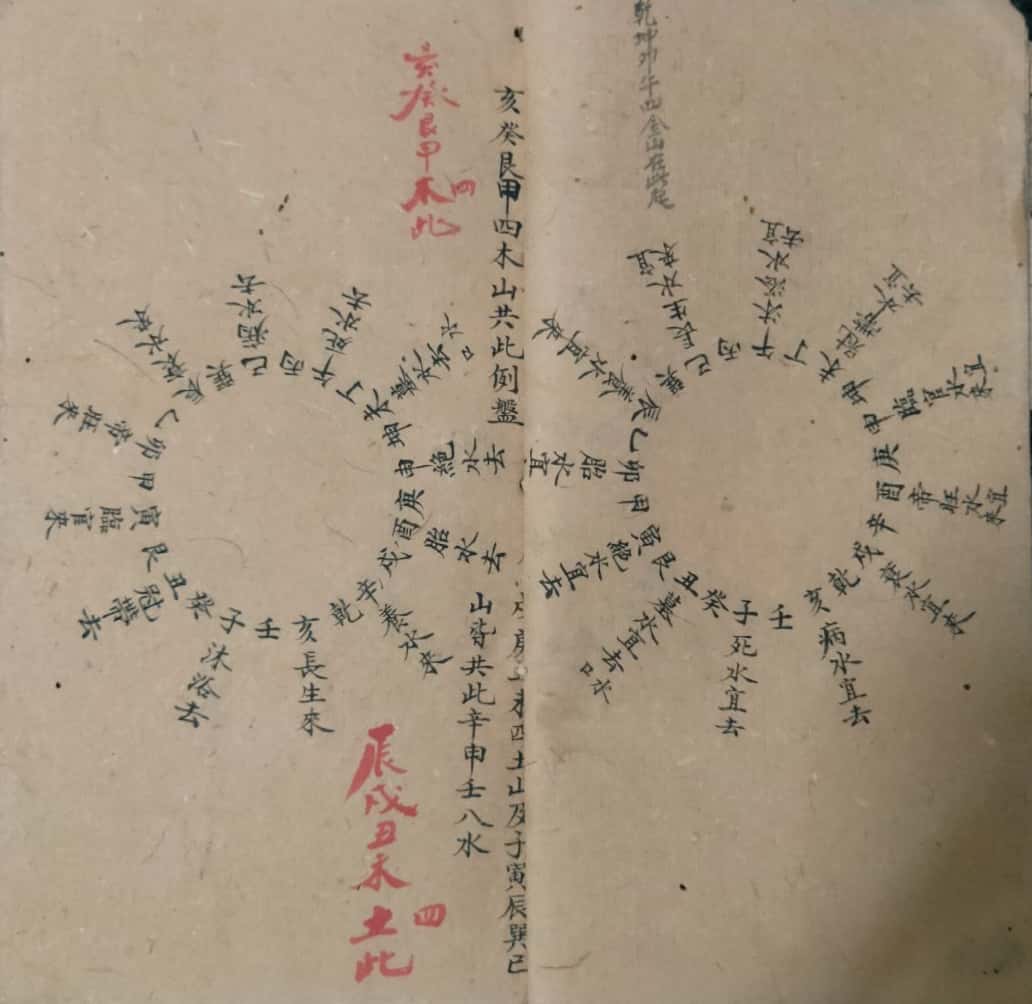 乾坤卯午四金山在此庭
亥癸艮甲四木山共此例盤
戌庚丑未四土山及子寅辰巽巳
山皆共此辛申壬八水
亥癸艮甲四
木此
辰戌丑未四
土此
壬
子死水宜去
癸
丑墓水宜去口水
艮
寅絕水宜去
甲
卯胎水宜
乙
辰養水
巽
巳長生水宜來
丙
午沐浴水宜去
丁
未冠帶水宜來
坤
申臨官水宜來
庚
酉帝旺水宜來
辛
戌衰水宜來
乾
亥病水宜去
壬
子沐浴去
癸
丑冠帶去
艮
寅臨官來
甲
卯帝旺來
乙
辰衰水來
巽
巳病水去
丙
午死水去
丁
未墓水去口水
坤
申絕水去
庚
酉胎水去
辛
戌養水來
乾
亥長生來